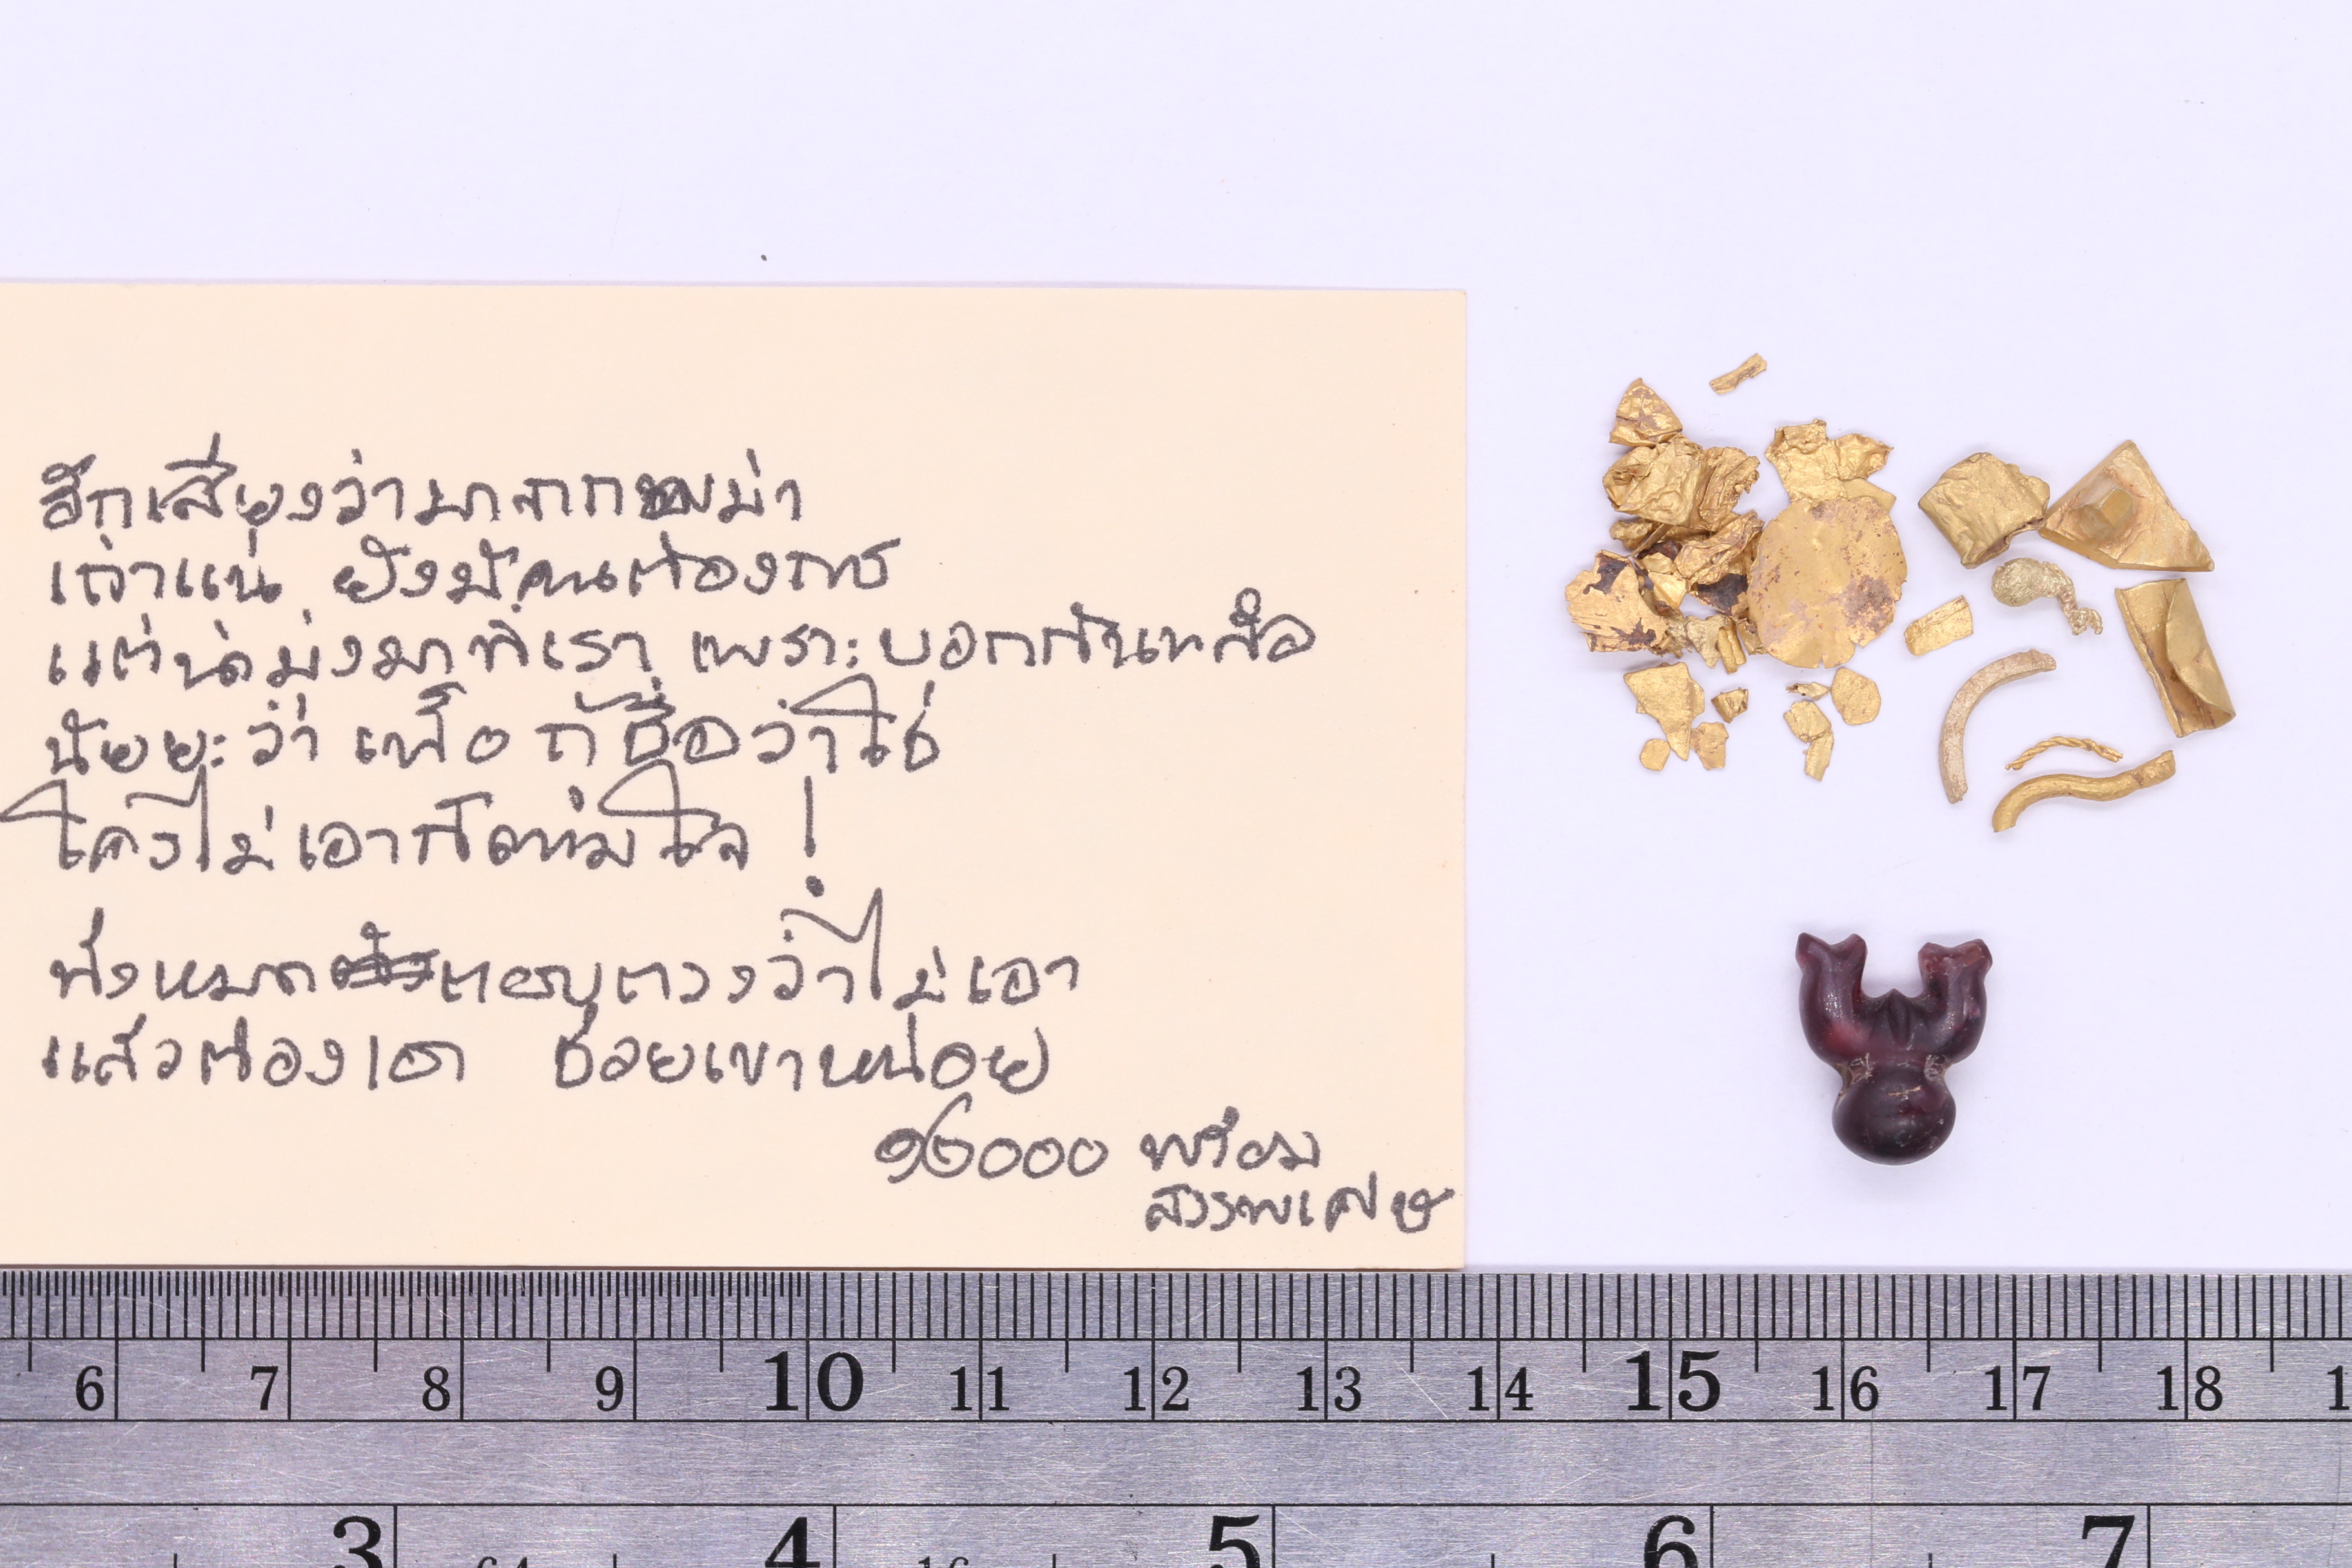 อีกเสียงว่ามาจากพม่า
เก่าแน่ ยังมีคนต้องการ
แต่นี่มุ่งมาที่เรา เพราะบอกกันเหลือ
น้อยยะว่า เพื่อ ก็ชื่อว่าใช่
ใครไม่เอาก็ตามใจ !
ทั้งหมด ว่าไม่เอา
แล้วต้องเอา ช่วยเขาหน่อย
๑๖๐๐๐ พร้อม
สรรพเศษ
6 7 8 9 10 11 12 13 14 15 16 17 18 1
3 4 5 6 7